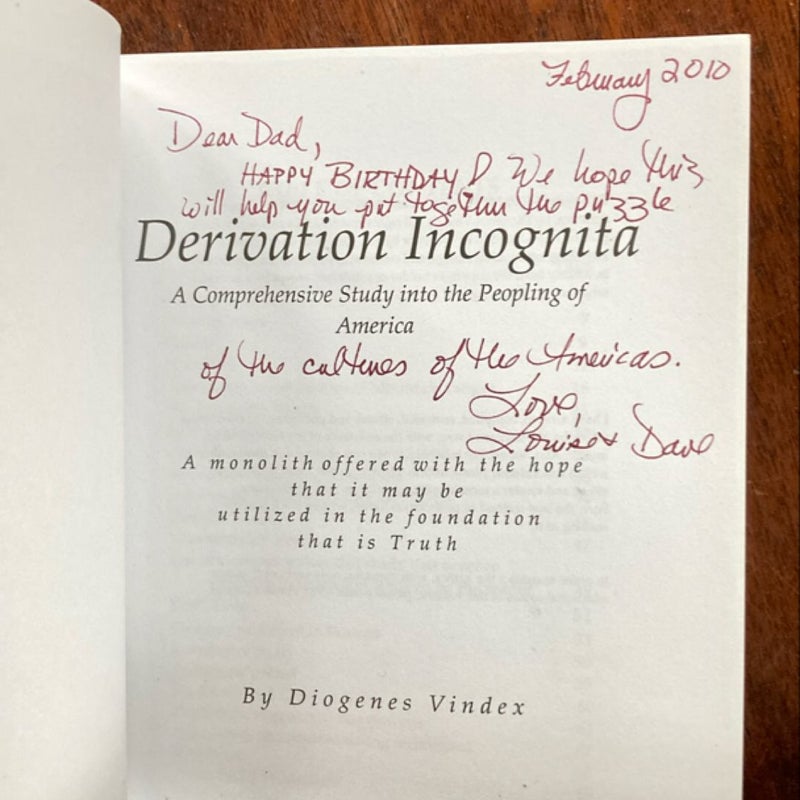 February 2010
Dear Dad,
HAPPY BIRTHDAY! We hope this
will help you put together the puzzle
Derivation Incognita
A Comprehensive Study into the Peopling of
America
of the cultures of the Americas.
Love,
Louise & Dave
A monolith offered with the hope
that it may be
utilized in the foundation
that is Truth
By Diogenes Vindex